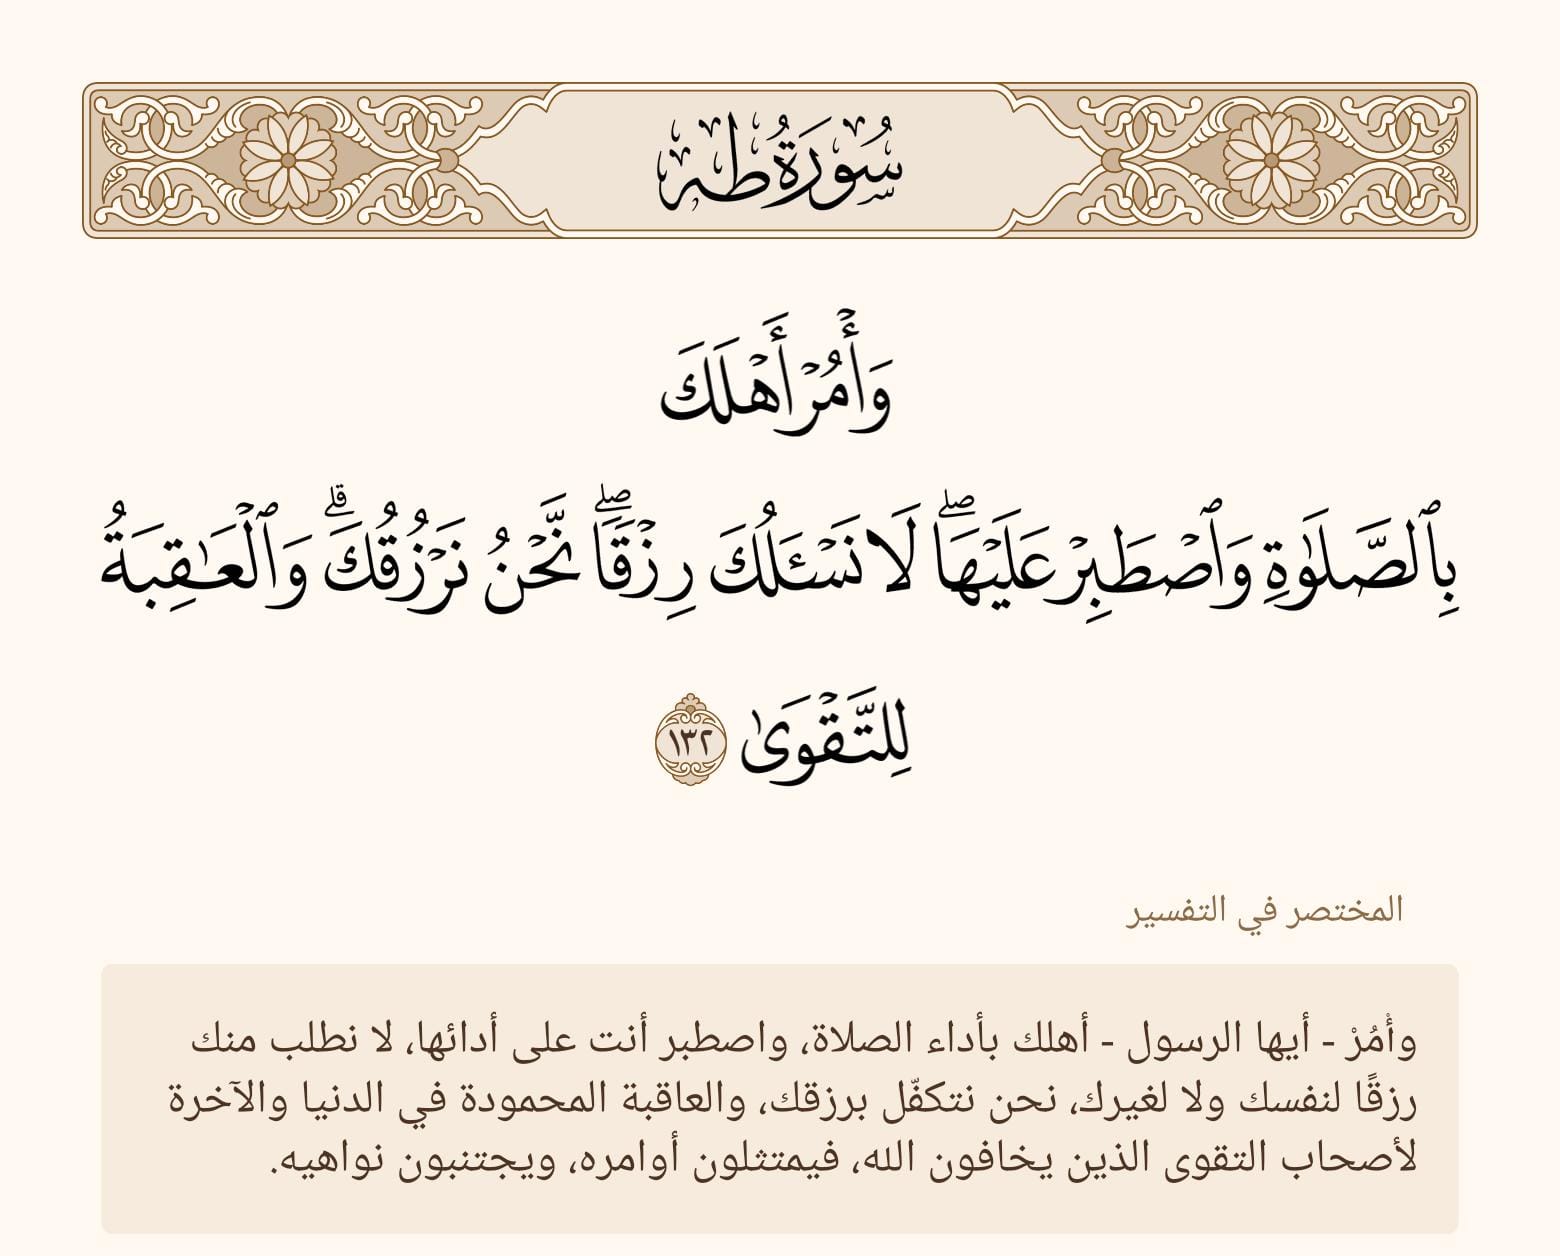 سُورَةُ طه
وَأۡمُرۡ أَهۡلَكَ
بِٱلصَّلَوٰةِ وَٱصۡطَبِرۡ عَلَيۡهَاۖ لَا نَسۡـَٔلُكَ رِزۡقٗاۖ نَّحۡنُ نَرۡزُقُكَۗ وَٱلۡعَٰقِبَةُ
لِلتَّقۡوَىٰ ١٣٢
المختصر في التفسير
وأْمُرْ - أيها الرسول - أهلك بأداء الصلاة، واصطبر أنت على أدائها، لا نطلب منك
رزقًا لنفسك ولا لغيرك، نحن نتكفّل برزقك، والعاقبة المحمودة في الدنيا والآخرة
لأصحاب التقوى الذين يخافون الله، فيمتثلون أوامره، ويجتنبون نواهيه.